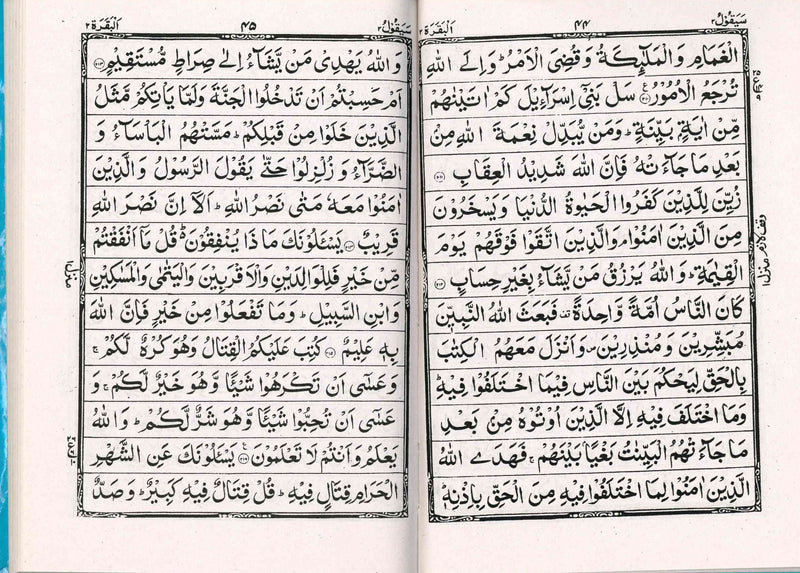 سَيَقُولُ ٢
٤٤
اَلْبَقَرَة ٢
الْغَمَامِ وَالْمَلٰٓئِكَةُ وَقُضِيَ الْاَمْرُ ؕ وَاِلَى اللّٰهِ
تُرْجَعُ الْاُمُوْرُ ﴿٢١٠﴾ سَلْ بَنِيْٓ اِسْرَآءِيْلَ كَمْ اٰتَيْنٰهُمْ
مِّنْ اٰيَةٍۭ بَيِّنَةٍ ؕ وَمَنْ يُّبَدِّلْ نِعْمَةَ اللّٰهِ مِنْۢ
بَعْدِ مَا جَآءَتْهُ فَاِنَّ اللّٰهَ شَدِيْدُ الْعِقَابِ ﴿٢١١﴾
زُيِّنَ لِلَّذِيْنَ كَفَرُوا الْحَيٰوةُ الدُّنْيَا وَيَسْخَرُوْنَ
مِنَ الَّذِيْنَ اٰمَنُوْا ۘ وَالَّذِيْنَ اتَّقَوْا فَوْقَهُمْ يَوْمَ
الْقِيٰمَةِ ؕ وَاللّٰهُ يَرْزُقُ مَنْ يَّشَآءُ بِغَيْرِ حِسَابٍ ﴿٢١٢﴾
كَانَ النَّاسُ اُمَّةً وَّاحِدَةً ۫ فَبَعَثَ اللّٰهُ النَّبِيّٖنَ
مُبَشِّرِيْنَ وَمُنْذِرِيْنَ ۪ وَاَنْزَلَ مَعَهُمُ الْكِتٰبَ
بِالْحَقِّ لِيَحْكُمَ بَيْنَ النَّاسِ فِيْمَا اخْتَلَفُوْا فِيْهِ ؕ
وَمَا اخْتَلَفَ فِيْهِ اِلَّا الَّذِيْنَ اُوْتُوْهُ مِنْۢ بَعْدِ
مَا جَآءَتْهُمُ الْبَيِّنٰتُ بَغْيًاۢ بَيْنَهُمْ ۚ فَهَدَى اللّٰهُ
الَّذِيْنَ اٰمَنُوْا لِمَا اخْتَلَفُوْا فِيْهِ مِنَ الْحَقِّ بِاِذْنِهٖ ؕ
سَيَقُولُ ٢
٤٥
اَلْبَقَرَة ٢
وَاللّٰهُ يَهْدِيْ مَنْ يَّشَآءُ اِلٰى صِرَاطٍ مُّسْتَقِيْمٍ ﴿٢١٣﴾
اَمْ حَسِبْتُمْ اَنْ تَدْخُلُوا الْجَنَّةَ وَلَمَّا يَاْتِكُمْ مَّثَلُ
الَّذِيْنَ خَلَوْا مِنْ قَبْلِكُمْ ؕ مَسَّتْهُمُ الْبَاْسَآءُ وَ
الضَّرَّآءُ وَ زُلْزِلُوْا حَتّٰى يَقُوْلَ الرَّسُوْلُ وَالَّذِيْنَ
اٰمَنُوْا مَعَهٗ مَتٰى نَصْرُ اللّٰهِ ؕ اَلَآ اِنَّ نَصْرَ اللّٰهِ
قَرِيْبٌ ﴿٢١٤﴾ يَسْـَٔلُوْنَكَ مَاذَا يُنْفِقُوْنَ ؕ قُلْ مَآ اَنْفَقْتُمْ
مِّنْ خَيْرٍ فَلِلْوَالِدَيْنِ وَالْاَقْرَبِيْنَ وَالْيَتٰمٰى وَالْمَسٰكِيْنِ
وَابْنِ السَّبِيْلِ ؕ وَمَا تَفْعَلُوْا مِنْ خَيْرٍ فَاِنَّ اللّٰهَ
بِهٖ عَلِيْمٌ ﴿٢١٥﴾ كُتِبَ عَلَيْكُمُ الْقِتَالُ وَهُوَ كُرْهٌ لَّكُمْ ۚ
وَعَسٰٓى اَنْ تَكْرَهُوْا شَيْـًٔا وَّهُوَ خَيْرٌ لَّكُمْ ۚ وَ
عَسٰٓى اَنْ تُحِبُّوْا شَيْـًٔا وَّهُوَ شَرٌّ لَّكُمْ ؕ وَاللّٰهُ
يَعْلَمُ وَاَنْتُمْ لَا تَعْلَمُوْنَ ﴿٢١٦﴾ يَسْـَٔلُوْنَكَ عَنِ الشَّهْرِ
الْحَرَامِ قِتَالٍ فِيْهِ ؕ قُلْ قِتَالٌ فِيْهِ كَبِيْرٌ ؕ وَصَدٌّ